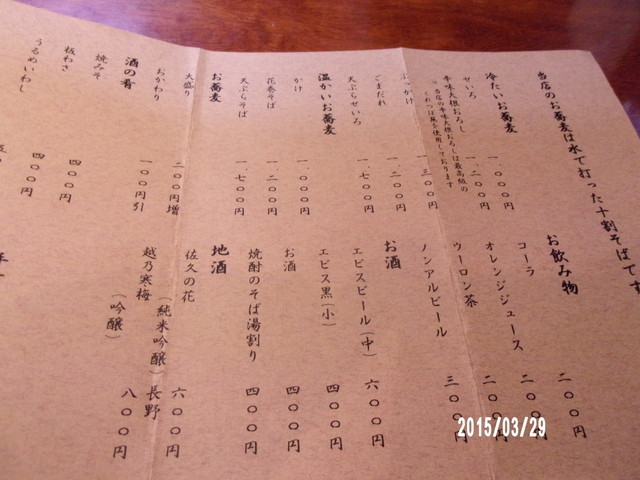 当店のお蕎麦は水で打った十割そばです
冷たいお蕎麦
せいろ 一、〇〇〇円
辛味大根おろし 一、二〇〇円
当店の辛味大根おろしは最高級の
を使用しております
ぶっかけ 一、三〇〇円
ごまだれ 一、二〇〇円
天ぷらせいろ 一、七〇〇円
温かいお蕎麦
かけ 一、〇〇〇円
花巻そば 一、二〇〇円
天ぷらそば 一、七〇〇円
お蕎麦
大盛り 二〇〇円増
おかわり 一〇〇円引
酒の肴
焼みそ 四〇〇円
板わさ 四〇〇円
うるめいわし
お飲み物
コーラ 二〇〇円
オレンジジュース 二〇〇円
ウーロン茶 二〇〇円
ノンアルビール 三〇〇円
お酒
エビスビール（中） 六〇〇円
エビス黒（小） 四〇〇円
お酒 四〇〇円
焼酎のそば湯割り 四〇〇円
地酒
佐久の花（純米吟醸）長野 六〇〇円
越乃寒梅（吟醸） 八〇〇円
2015/03/29